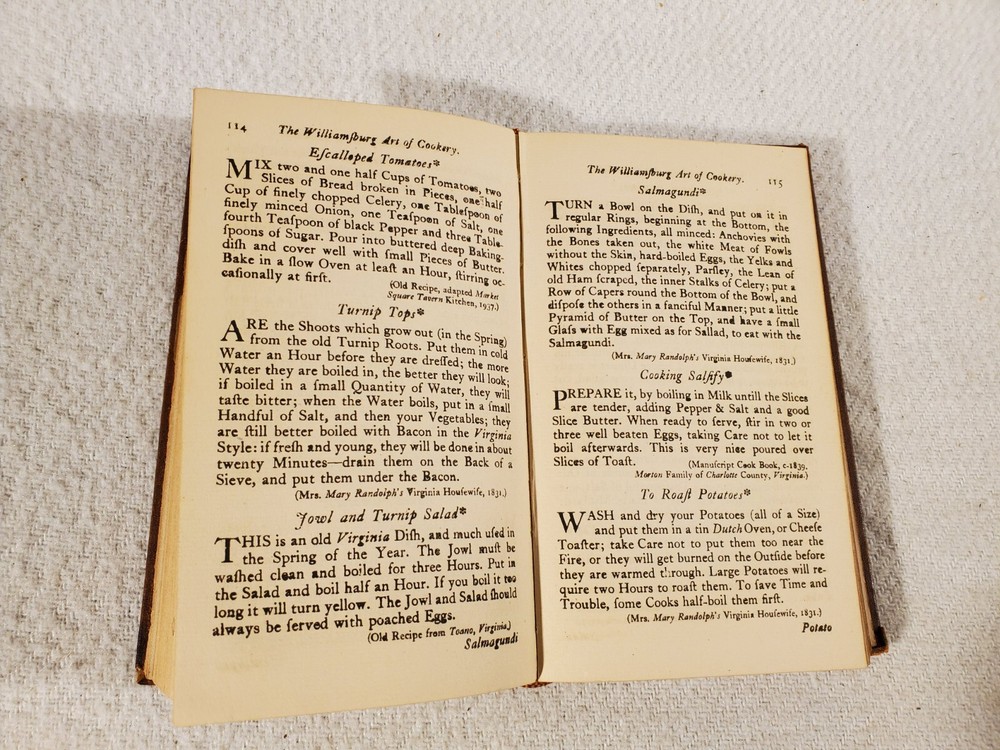 114 The Williamſburg Art of Cookery.
Eſcalloped Tomatoes*
MIX two and one half Cups of Tomatoes, two
Slices of Bread broken in Pieces, one half
Cup of finely chopped Celery, one Tableſpoon of
finely minced Onion, one Teaſpoon of Salt, one
fourth Teaſpoon of black Pepper and three Table-
ſpoons of Sugar. Pour into buttered deep Baking-
diſh and cover well with ſmall Pieces of Butter.
Bake in a ſlow Oven at leaſt an Hour, ſtirring oc-
caſionally at firſt.
(Old Recipe, adapted Market
Square Tavern Kitchen, 1937.)
Turnip Tops*
ARE the Shoots which grow out (in the Spring)
from the old Turnip Roots. Put them in cold
Water an Hour before they are dreſſed; the more
Water they are boiled in, the better they will look;
if boiled in a ſmall Quantity of Water, they will
taſte bitter; when the Water boils, put in a ſmall
Handful of Salt, and then your Vegetables; they
are ſtill better boiled with Bacon in the Virginia
Style: if freſh and young, they will be done in about
twenty Minutes—drain them on the Back of a
Sieve, and put them under the Bacon.
(Mrs. Mary Randolph's Virginia Houſewife, 1831.)
Jowl and Turnip Salad*
THIS is an old Virginia Diſh, and much uſed in
the Spring of the Year. The Jowl muſt be
waſhed clean and boiled for three Hours. Put in
the Salad and boil half an Hour. If you boil it too
long it will turn yellow. The Jowl and Salad ſhould
always be ſerved with poached Eggs.
(Old Recipe from Toano, Virginia.)
Salmagundi
The Williamſburg Art of Cookery. 115
Salmagundi*
TURN a Bowl on the Diſh, and put on it in
regular Rings, beginning at the Bottom, the
following Ingredients, all minced: Anchovies with
the Bones taken out, the white Meat of Fowls
without the Skin, hard-boiled Eggs, the Yelks and
Whites chopped ſeparately, Parſley, the Lean of
old Ham ſcraped, the inner Stalks of Celery; put a
Row of Capers round the Bottom of the Bowl, and
diſpoſe the others in a fanciful Manner; put a little
Pyramid of Butter on the Top, and have a ſmall
Glaſs with Egg mixed as for Sallad, to eat with the
Salmagundi.
(Mrs. Mary Randolph's Virginia Houſewife, 1831.)
Cooking Salſify*
PREPARE it, by boiling in Milk untill the Slices
are tender, adding Pepper & Salt and a good
Slice Butter. When ready to ſerve, ſtir in two or
three well beaten Eggs, taking Care not to let it
boil afterwards. This is very nice poured over
Slices of Toaſt.
(Manuſcript Cook Book, c-1839.
Morton Family of Charlotte County, Virginia.)
To Roaſt Potatoes*
WASH and dry your Potatoes (all of a Size)
and put them in a tin Dutch Oven, or Cheeſe
Toaſter; take Care not to put them too near the
Fire, or they will get burned on the Outſide before
they are warmed through. Large Potatoes will re-
quire two Hours to roaſt them. To ſave Time and
Trouble, ſome Cooks half-boil them firſt.
(Mrs. Mary Randolph's Virginia Houſewife, 1831.)
Potato